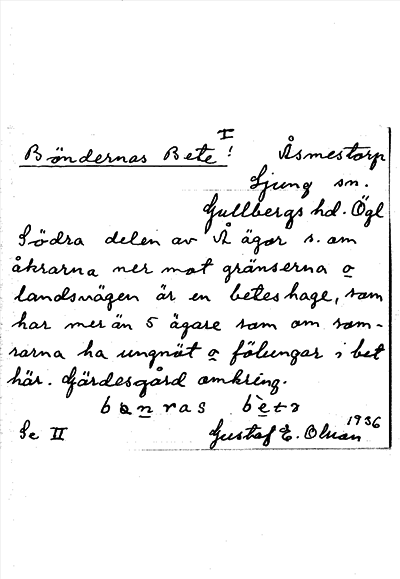 I
Böndernas Bete! Åsmestorp
Ljung sn.
Gullbergs hd. Ögl
Södra delen av Å ägor s. om
åkrarna ner mot gränserna o
landsvägen är en beteshage, som
har mer än 5 ägare som om som-
rarna ha ungnöt o fölungar i bet
här. Gärdesgård omkring.
bönras bètə
1936
Se II Gustaf E. Olson